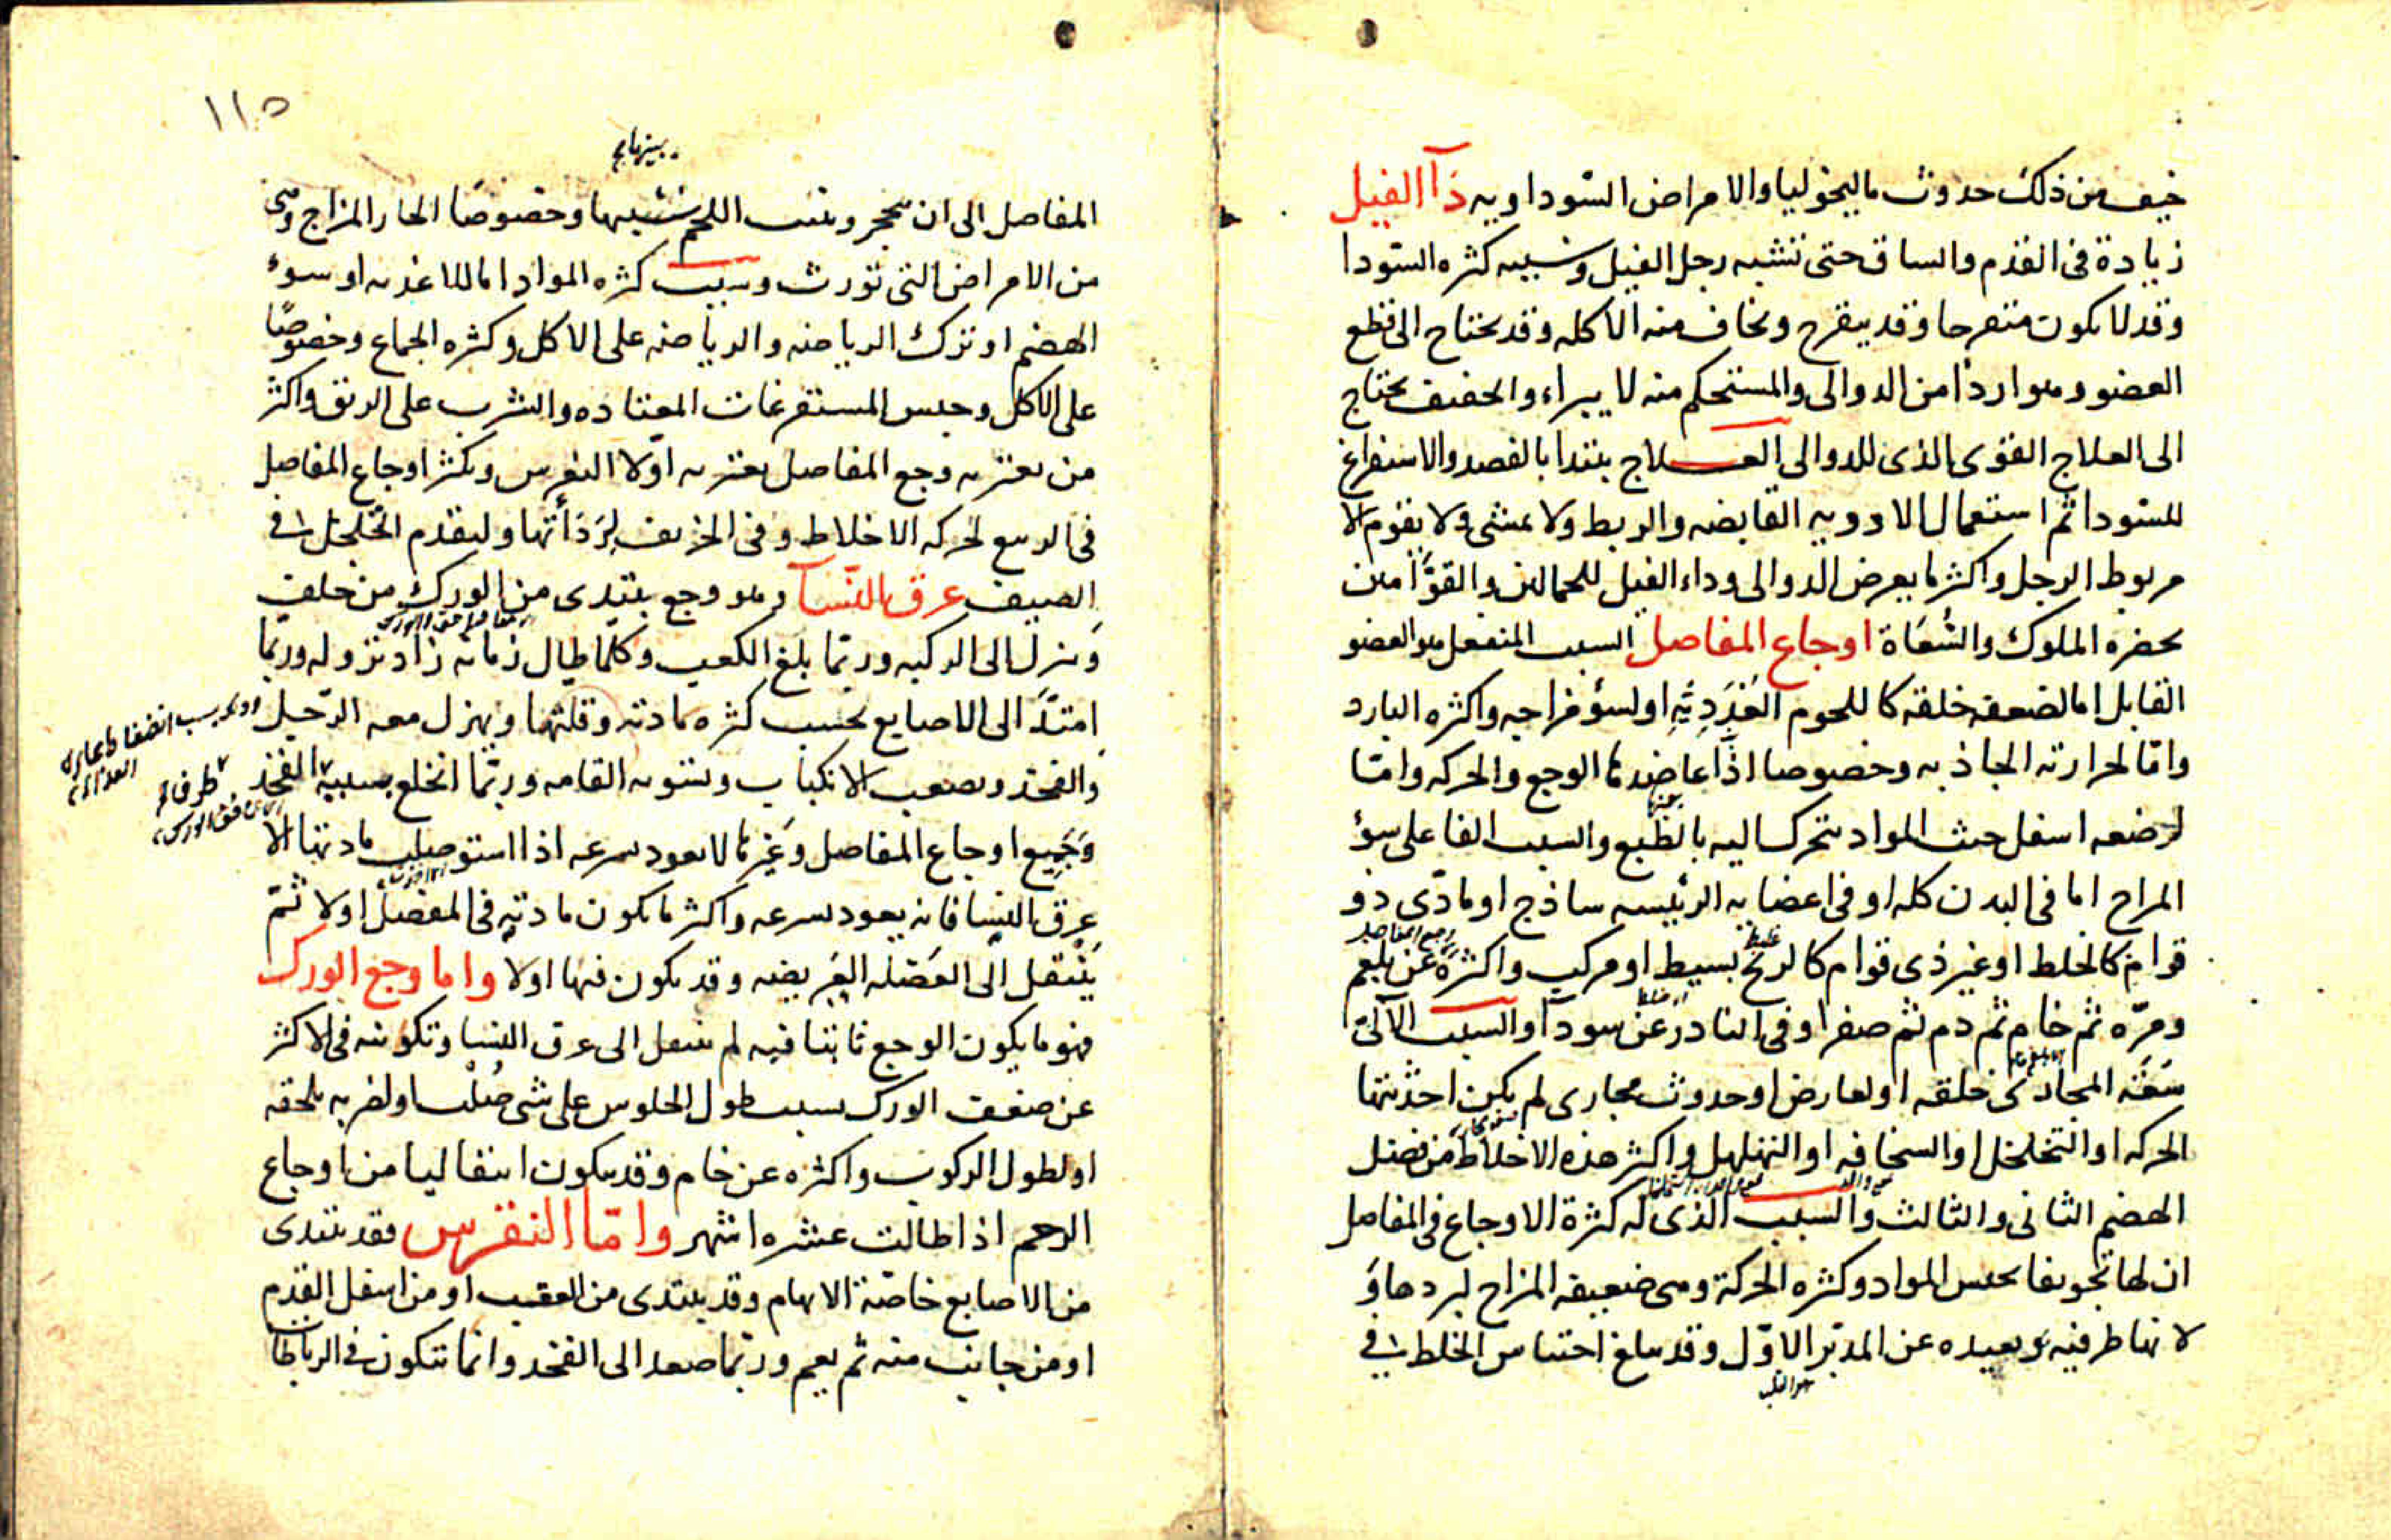 خيف من ذلك حدوث ماليخوليا والامراض السوداويه دآ الفيل
زيادة فى القدم والساق حتى تشبه رجل الفيل وسببه كثره السودا
وقد لا يكون متقرحا وقد يتقرح ويخاف منه الاكله وقد يحتاج الى قطع
العضو وهو اردا من الدوالى والمستحكم منه لا يبراء والخفيف يحتاج
الى العلاج القوى الذى للدوالى العلاج يبتدا بالفصد والاستفراغ
للسودا ثم استعمال الادويه القابضه والربط ولا يمشى ولا يقوم الا
مربوط الرجل واكثر ما يعرض الدوالى وداء الفيل للحمالين والقوامين
بحضره الملوك والسُّعَاة اوجاع المفاصل السبب المنفعل هو العضو
القابل اما لضعفه خلقه كاللحوم الغُدَدِيّه او لسؤ مزاجه واكثره البارد
وامّا لحرارته الجاذبه وخصوصا اذا عاضدها الوجع والحركه وامّا
لوضعه اسفل حيث المواد تتحرك اليه بالطبع والسبب الفاعلى سؤ
المزاج اما فى البدن كله او فى اعضايه الرئيسه ساذج او مادّى ذو
قوام كالخلط او غير ذى قوام كالريح بسيط او مركب واكثره عن بلغم
ومرّه ثم خام ثم دم ثم صفرا وفى النادر عن سودآ والسبب الآلى
سَعَة المجارى خلقه او لعارض او حدوث مجارى لم يكن احدثتها
الحركه او التخلخل او السخافه او التهلهل واكثر هذه الاخلاط من فضل
الهضم الثانى والثالث والسبب الذى له كثرة الاوجاع فى المفاصل
ان لها تجويفا يحبس المواد وكثره الحركة وهى ضعيفه المزاج لبردها وَ
لانها طرفيه بعيده عن المدبّر الاوّل وقد يبلغ احتباس الخلط فى
هو القلب
١١٥
بينهما
المفاصل الى ان يتحجر وينبت اللحم بينها وخصوصًا الحار المزاج وهى
من الامراض التى تورث وسبب كثره المواد اما للاغذيه او سوء
الهضم او ترك الرياضه والرياضه على الاكل وكثره الجماع وخصوصًا
على الاكل وحبس المستفرغات المعتاده والشرب على الريق واكثر
من يعتريه وجع المفاصل يعتريه اولا النقرس ويكثر اوجاع المفاصل
فى الربيع لحركه الاخلاط وفى الخريف لِرَدَأتها ولتقدم التخلخل فى
الصيف عرق النّسا وهو وجع يبتدى من الورك من خلف
وَينزل الى الركبه وربّما بلغ الكعب وكلّما طال زمانه زاد نزوله وربّما
امتدّ الى الاصابع بحسب كثره مادته وقلتها ويهزل معه الرّجل
والفخذ ويصعب الانكباب وتسويه القامه وربّما انخلع بسببه الفخذ
وَجَمِيع اوجاع المفاصل وَغيرها لا يعود بسرعه اذا استوصلت مادتها الا
عرق النسا فانه يعود بسرعه واكثر ما يكون مادته فى المفصل اولا ثمّ
يَنْتقل الى العَضَله العَريضه وقد يكون فيها اولا واما وجع الورك
فهو ما يكون الوجع ثابتا فيه لم ينتقل الى عرق النسا وتكونه فى الاكثر
عن ضعف الورك بسبب طول الجلوس على شى صُلْب او لضربه تلحقه
او لطول الركوب واكثره عن خام وقد يكون انتقاليا من اوجاع
الرحم اذا طالت عشره اشهر وامّا النقرس فقد يبتدى
من الاصابع خاصّة الابهام وقد يبتدى من العقب او من اسفل القدم
او من جانب منه ثم يعم وربّما صعد الى الفخذ وانما تتكون فى الرباطات